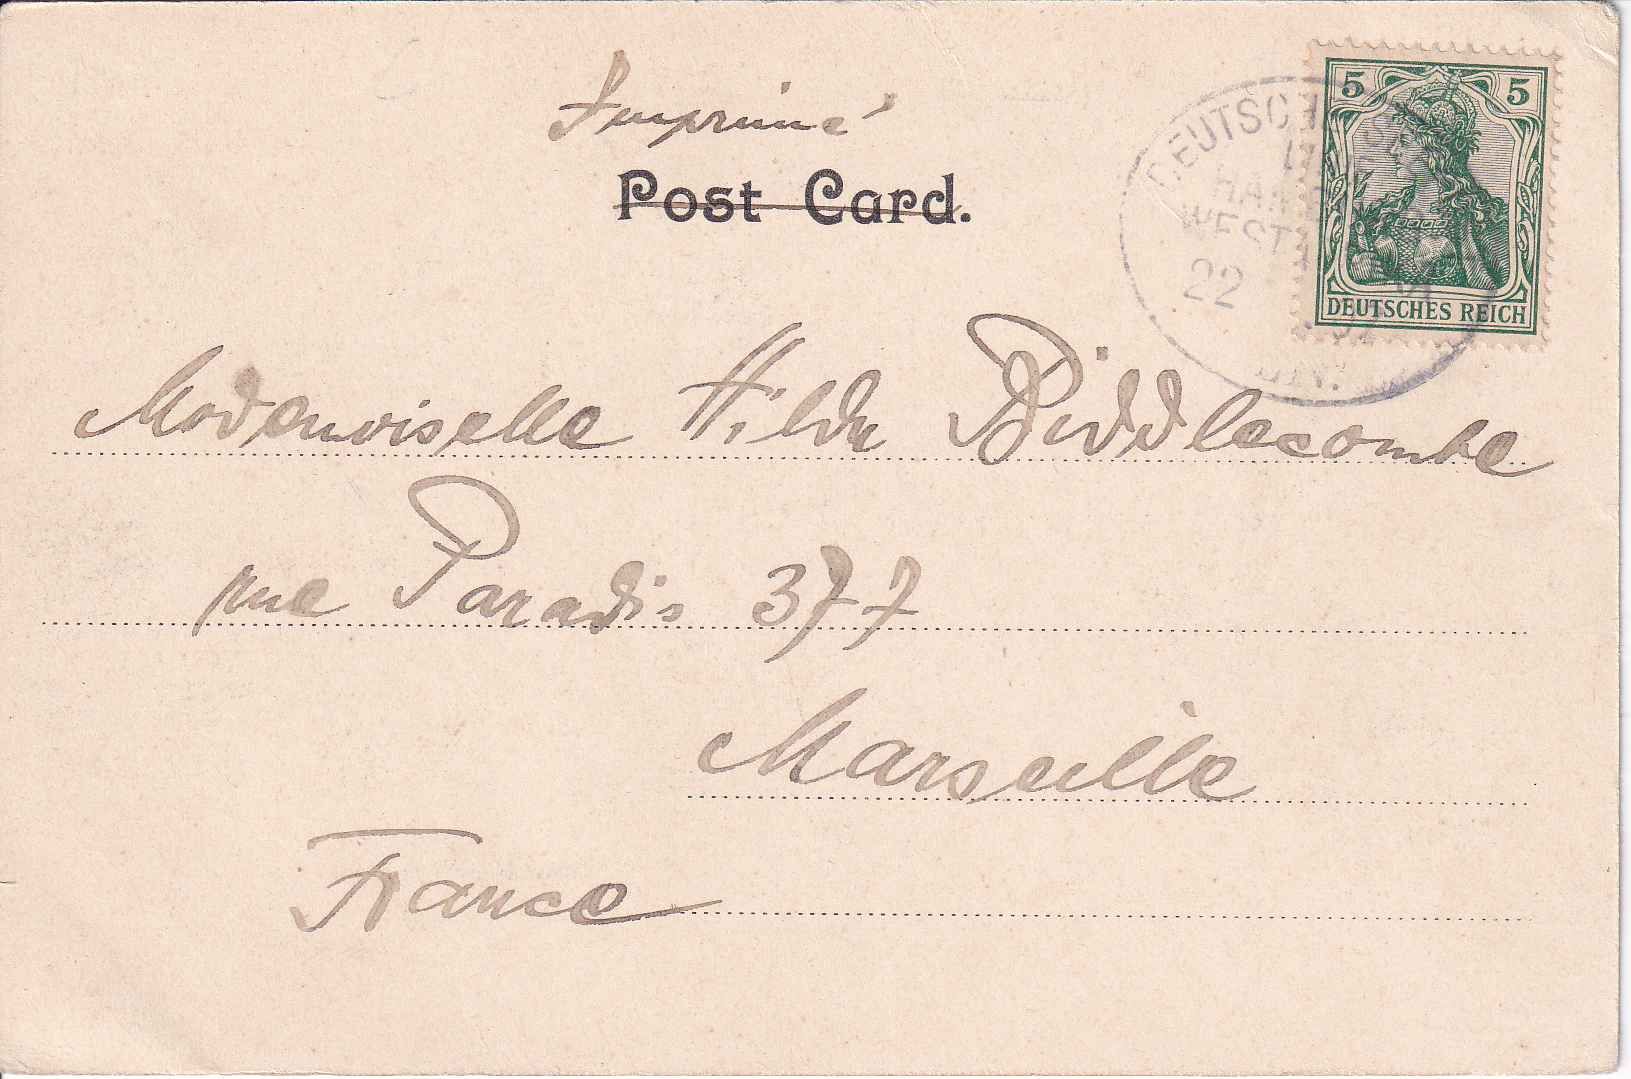 Imprimé
Post Card.
5 5
DEUTSCHES REICH
DEUTSCHE
22
Mademoiselle Hilda Biddlecombe
rue Paradis 377
Marseille
France